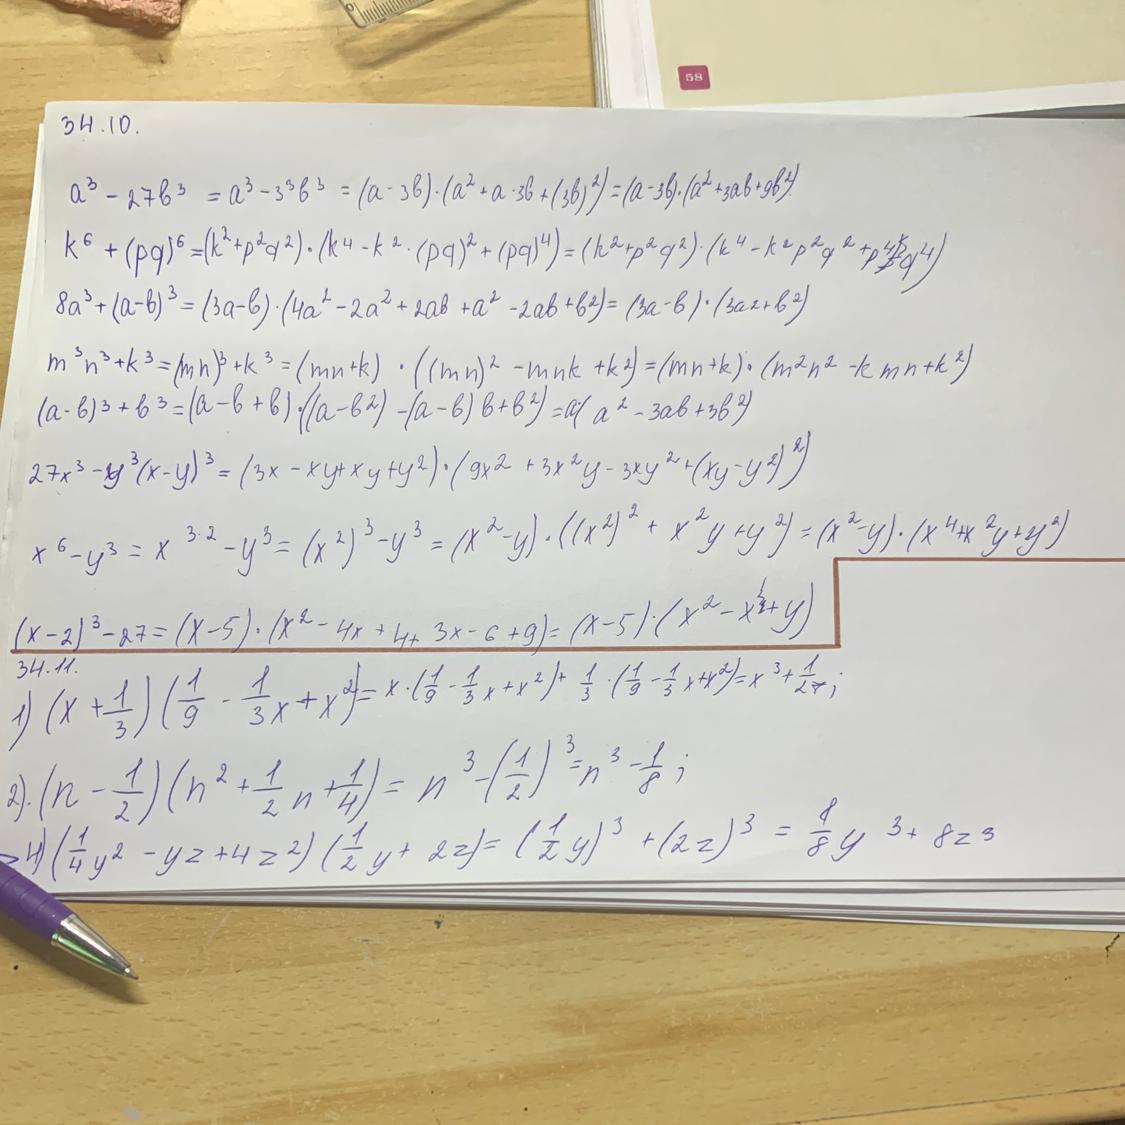 58
34.10.
a³ - 27b³ = a³ - 3³b³ = (a - 3b)·(a² + a·3b + (3b)²) = (a - 3b)·(a² + 3ab + 9b²)
k⁶ + (pq)⁶ = (k² + p²q²)·(k⁴ - k²·(pq)² + (pq)⁴) = (k² + p²q²)·(k⁴ - k²p²q² + p⁴q⁴)
8a³ + (a-b)³ = (3a-b)·(4a² - 2a² + 2ab + a² - 2ab + b²) = (3a-b)·(3a2 + b²)
m³n³ + k³ = (mn)³ + k³ = (mn+k)·((mn)² - mnk + k²) = (mn+k)·(m²n² - kmn + k²)
(a-b)³ + b³ = (a-b+b)·((a-b²) - (a-b)b + b²) = a·(a² - 3ab + 3b²)
27x³ - y³(x-y)³ = (3x - xy + xy + y²)·(9x² + 3x²y - 3xy² + (xy - y²)²)
x⁶ - y³ = x³·² - y³ = (x²)³ - y³ = (x² - y)·((x²)² + x²y + y²) = (x² - y)·(x⁴ + x²y + y²)
(x-2)³ - 27 = (x-5)·(x² - 4x + 4 + 3x - 6 + 9) = (x-5)·(x² - x + y)
34.11.
1) (x + 1/3)(1/9 - 1/3x + x²) = x·(1/9 - 1/3x + x²) + 1/3·(1/9 - 1/3x + x²) = x³ + 1/27;
2).(n - 1/2)(n² + 1/2n + 1/4) = n³ - (1/2)³ = n³ - 1/8;
4) (1/4y² - yz + 4z²)(1/2y + 2z) = (1/2y)³ + (2z)³ = 1/8y³ + 8z³